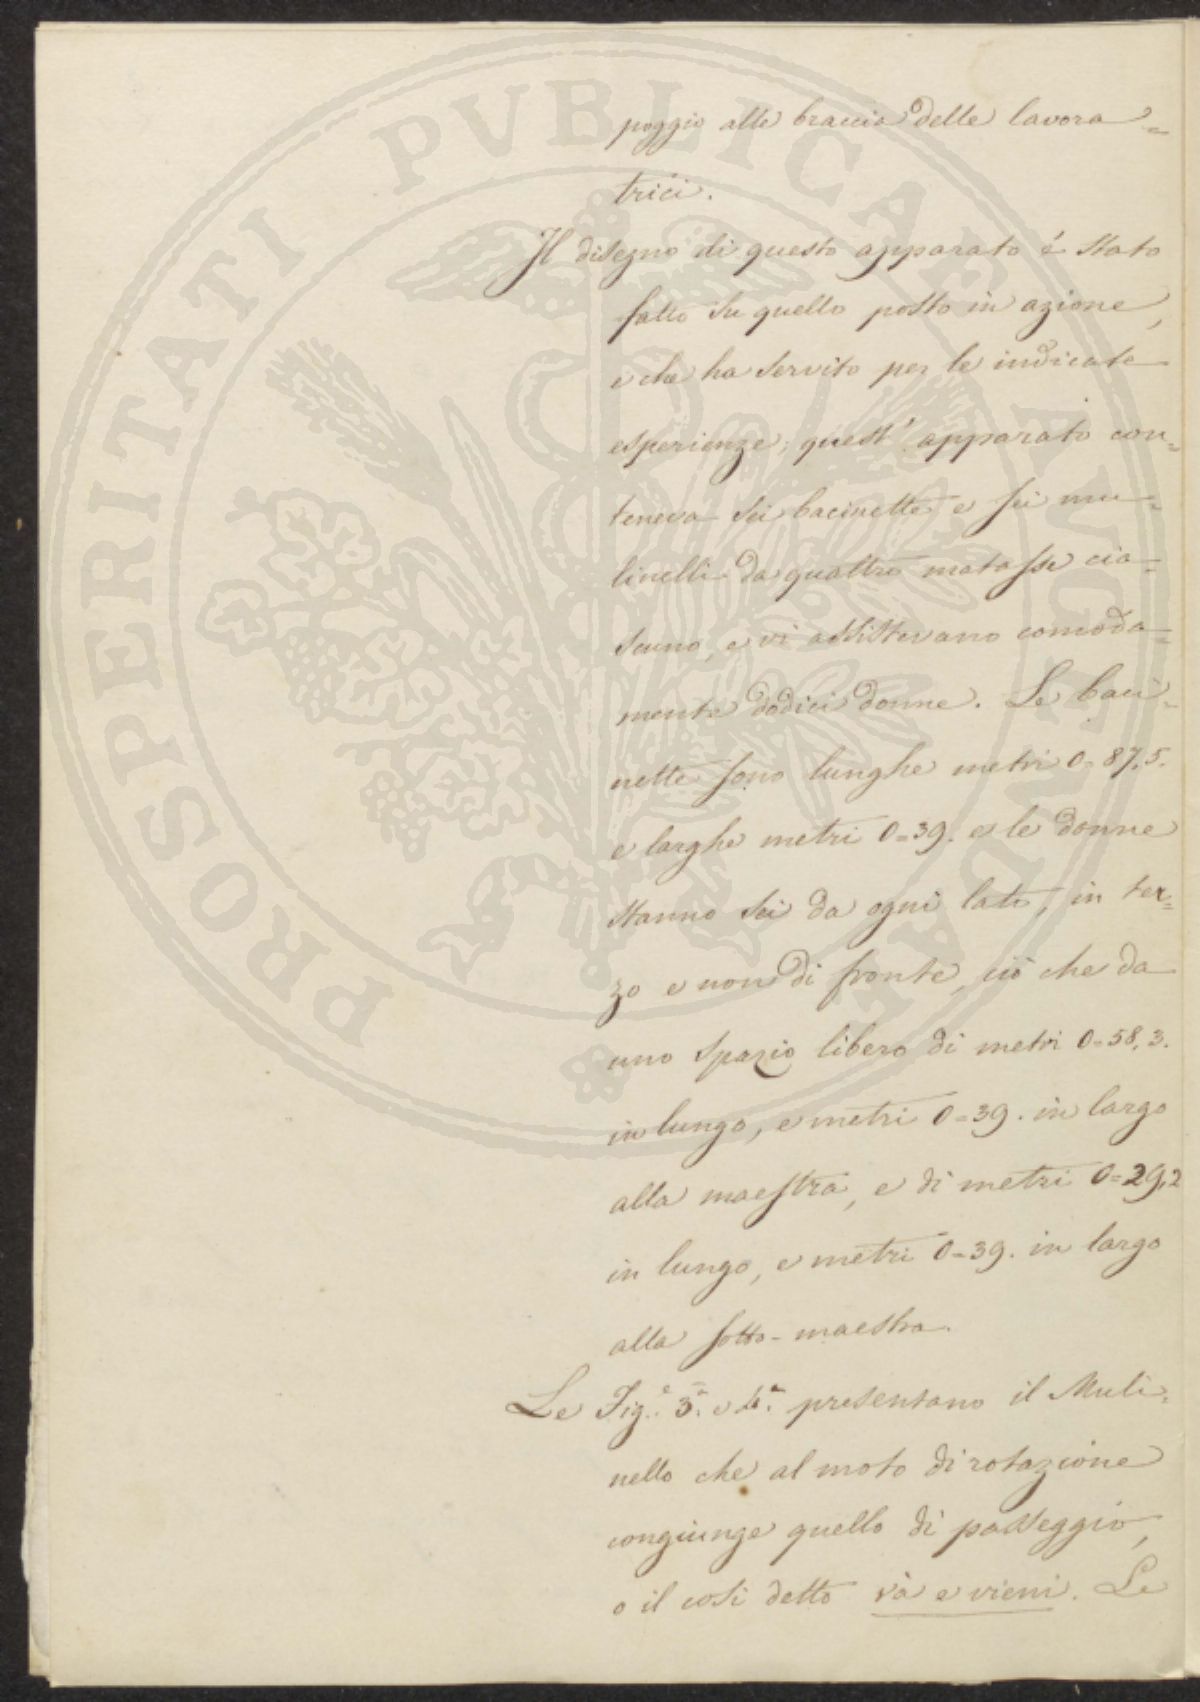 poggio alle braccia delle lavora=
trici.
Il disegno di questo apparato è stato
fatto su quello posto in azione,
e che ha servito per le indicate
esperienze; quest' apparato con=
teneva sei bacinette e sei mu=
linelli da quattro matasse cia=
scuno, e vi assistevano comoda=
mente dodici donne. Le baci=
nette sono lunghe metri 0=87,5.
e larghe metri 0=39. e le donne
stanno sei da ogni lato, in ter=
zo e non di fronte, ciò che da
uno spazio libero di metri 0=58,3.
in lungo, e metri 0=39. in largo
alla maestra, e di metri 0=29,2
in lungo, e metri 0=39. in largo
alla sotto-maestra.
Le Fig.e 3.a e 4.a presentano il Muli=
nello che al moto di rotazione
congiunge quello di passeggio,
o il così detto và e vieni. Le
PROSPERITATI PVBLICAE AVGENDAE